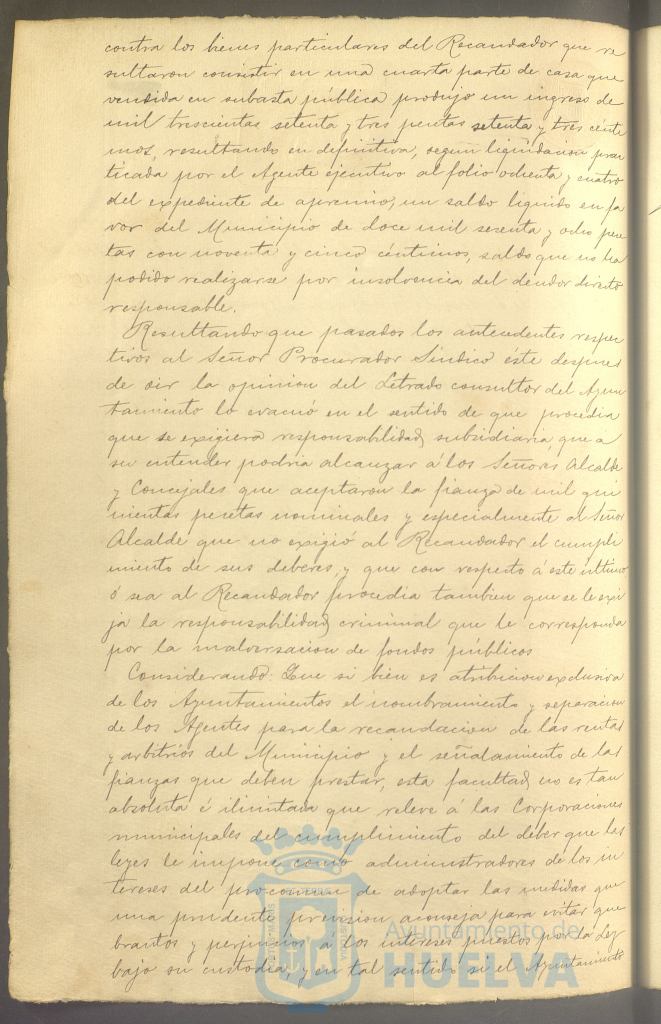 contra los bienes particulares del Recaudador que re
sultaron consistir en una cuarta parte de casa que
vendida en subasta pública produjo un ingreso de
mil trescientas setenta y tres pesetas setenta y tres cénti
mos, resultando en definitiva, segun liquidacion prac
ticada por el Agente ejecutivo al folio ochenta y cuatro
del expediente de apremio, un saldo líquido en fa
vor del Municipio de doce mil sesenta y ocho pese
tas con noventa y cinco céntimos, saldo que no ha
podido realizarse por insolvencia del deudor directo
responsable.
Resultando que pasados los antecedentes respec
tivos al Señor Procurador Síndico este despues
de oir la opinion del Letrado consultor del Ayun
tamiento lo evacuó en el sentido de que procedia
que se exigiera responsabilidad subsidiaria que a
su entender podria alcanzar á los Señores Alcalde
y Concejales que aceptaron la fianza de mil qui
nientas pesetas nominales y especialmente al Señor
Alcalde que no exigió al Recaudador el cumpli
miento de sus deberes, y que con respecto á este último
ó sea al Recaudador procedia tambien que se le exi
ja la responsabilidad criminal que le corresponda
por la malversacion de fondos públicos
Considerando: Que si bien es atribicion exclusiva
de los Ayuntamientos el nombramiento y separacion
de los Agentes para la recaudacion de las rentas
y arbitrios del Municipio y el señalamiento de las
fianzas que deben prestar, esta facultad no es tan
absoluta é ilimitada que releve á las Corporaciones
municipales del cumplimiento del deber que las
leyes le impone como administradores de los in
tereses del procomun de adoptar las medidas que
una prudente prevision aconseja para evitar que
brantos y perjuicios á los intereses puestos por la Ley
bajo su custodia, y en tal sentido si el Ayuntamiento
Ayuntamiento de
HUELVA